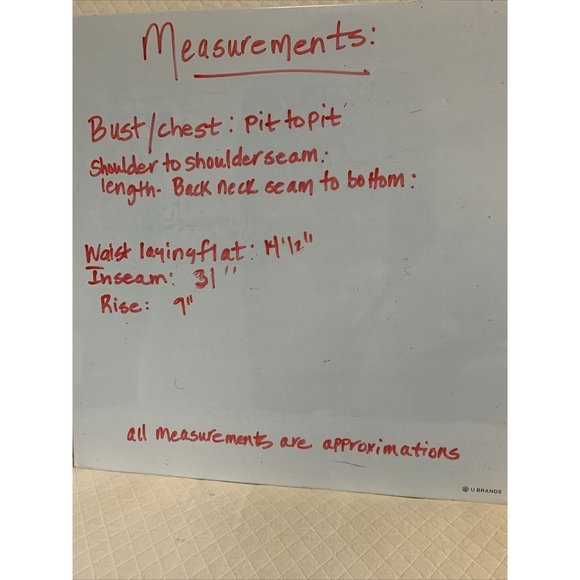 Measurements:
Bust/chest: pit to pit
Shoulder to shoulder seam:
length- Back neck seam to bottom:
Waist laying flat: 14 1/2"
Inseam: 31"
Rise: 9"
all measurements are approximations
U BRANDS